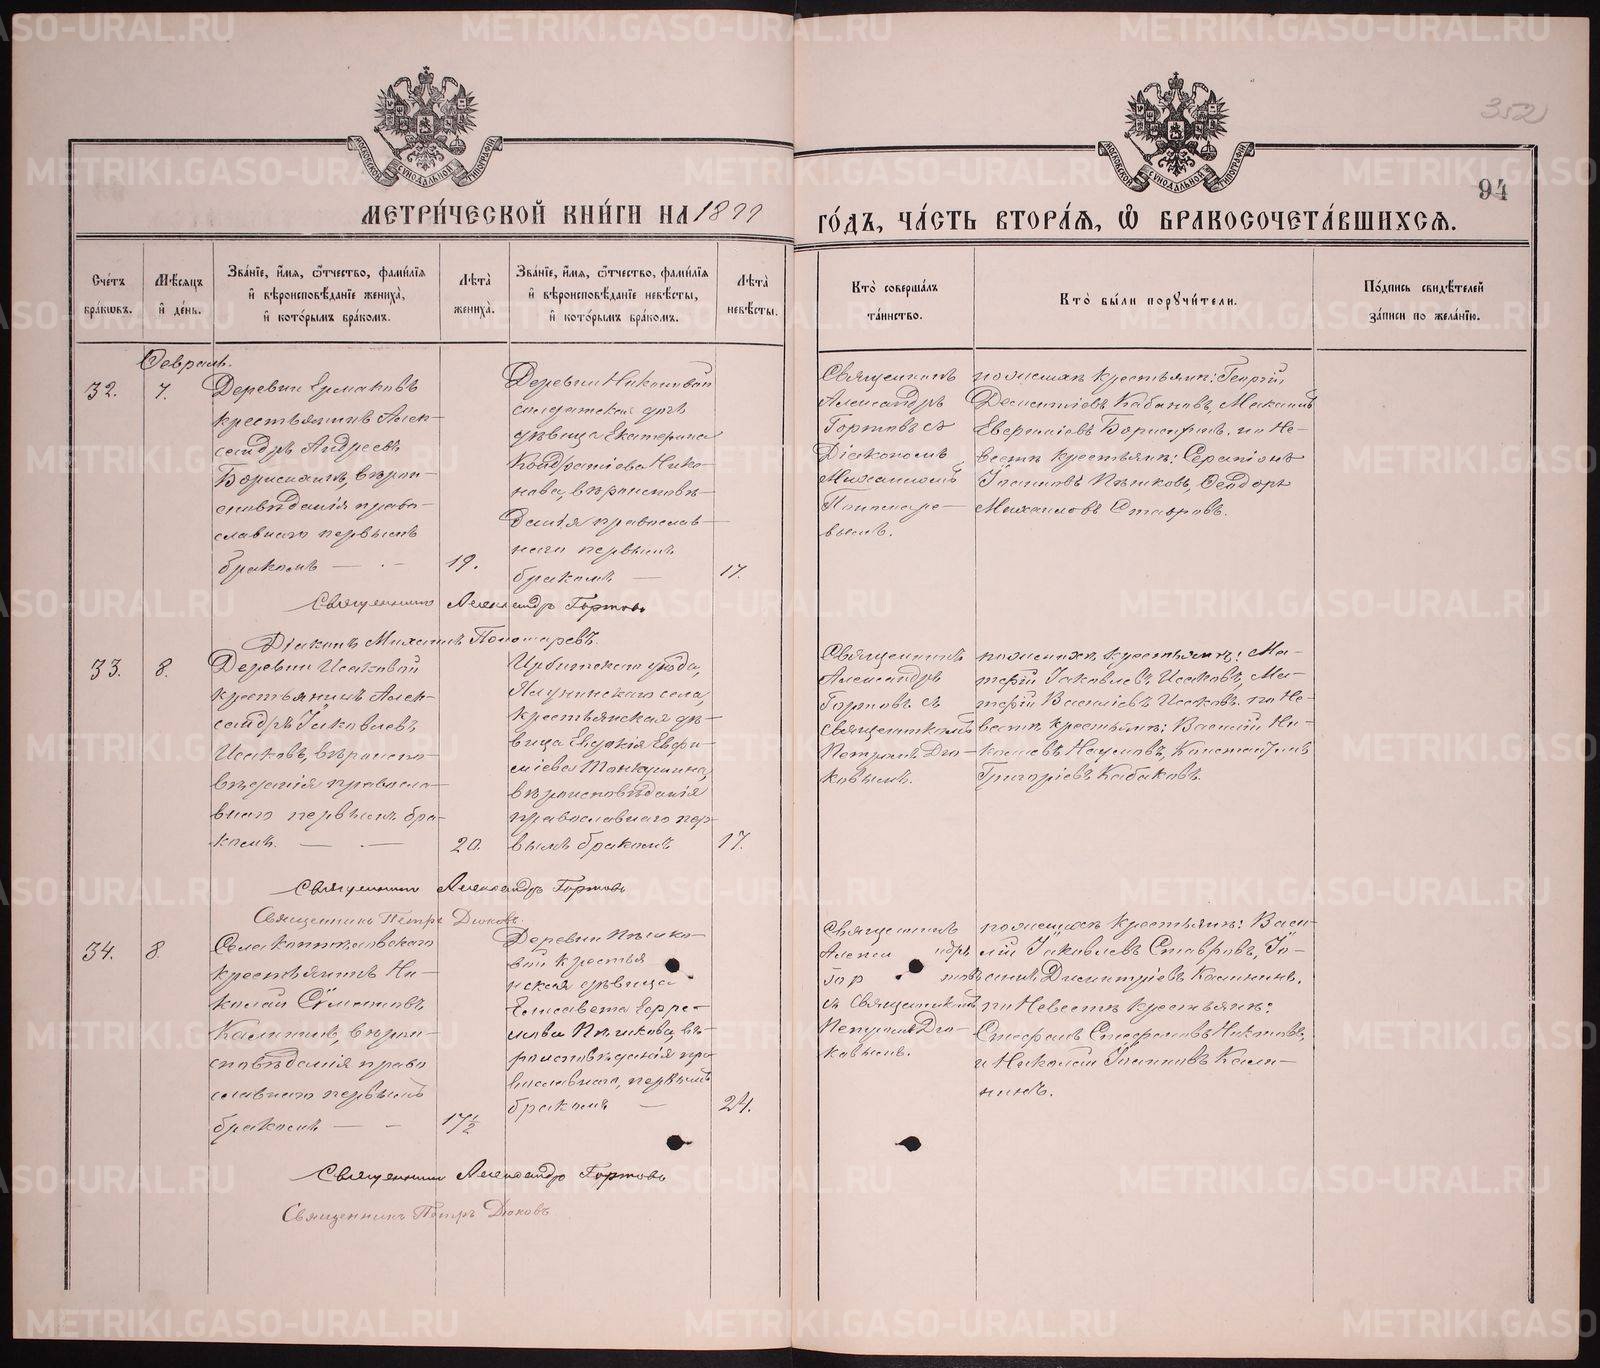 352
94
МОСКОВСКОЙ СУНОДАЛЬНОЙ ТИПОГРАФІИ
МОСКОВСКОЙ СУНОДАЛЬНОЙ ТИПОГРАФІИ
МЕТРИ́ЧЕСКОЙ КНИ́ГИ НА 1899
ГО́ДЪ, ЧА́СТЬ ВТОРА́Я, Ѽ БРАКОСОЧЕТА́ВШИХСЯ.
Сче́тъ бра́кѡвъ.
Мѣ́сяцъ и҆ де́нь.
Зва́нїе, и҆́мя, ѻ҆́тчество, фами́лїя и҆ вѣроисповѣ́данїе жениха̀, и҆ кото́рымъ бра́комъ.
Лѣта̀ жениха̀.
Зва́нїе, и҆́мя, ѻ҆́тчество, фами́лїя и҆ вѣроисповѣ́данїе невѣ́сты, и҆ кото́рымъ бра́комъ.
Лѣта̀ невѣ́сты.
Кто̀ соверша́лъ та́инство.
Кто̀ бы́ли порꙋчи́тели.
По́дпись свидѣ́телей за́писи по жела́нїю.
Февраль.
32.
7.
Деревни Ермаковъ
крестьянинъ Алек-
сандръ Андреевъ
Борисихинъ, вѣрои-
сповѣданія право-
славнаго первымъ
бракомъ — . —
19.
Деревни Никоновой
солдатская дочь
дѣвица Екатерина
Кондратіева Нико-
нова, вѣроисповѣ-
данія православ-
наго первымъ
бракомъ —
17.
Священникъ
Александръ
Гортовъ съ
Діакономъ
Михаиломъ
Пономаре-
вымъ.
по женихѣ крестьяне: Георгій
Дементіевъ Кабаковъ, Максимъ
по Не-
вѣстѣ крестьяне: Серапіонъ
Іоанновъ Пѣшковъ, Ѳеодоръ
Михаиловъ Ставровъ.
Священникъ Александръ Гортовъ
Діаконъ Михаилъ Пономаревъ.
33.
8.
Деревни Исаковой
крестьянинъ Алек-
сандръ Іаковлевъ
Исаковъ, вѣроиспо-
вѣданія правосла-
внаго первымъ бра-
комъ. — . —
20.
Ирбитскаго уѣзда,
села,
крестьянская дѣ-
вица Евдокія Евфи-
міева
вѣроисповѣданія
православнаго пер-
вымъ бракомъ
17.
Священникъ
Александръ
Гортовъ съ
Священникомъ
Петромъ Дю-
ковымъ.
по женихѣ крестьяне: Ма-
твій Іаковлевъ Исаковъ, Ма-
твій Василіевъ Исаковъ. по Не-
вѣстѣ крестьяне: Василій Ни-
Наумовъ, Константинъ
Григоріевъ Кабаковъ.
Священникъ Александръ Гортовъ
Священникъ Петръ Дюковъ.
34.
8.
Села
крестьянинъ Ни-
колай
Калининъ, вѣрои-
сповѣданія право
славнаго первымъ
бракомъ — —
17½
Деревни Пѣшко-
вой крестья
нская дѣвица
Елисавета Ефре-
мова Пѣшкова, вѣ-
роисповѣданія пра-
вославнаго, первымъ
бракомъ —
24.
Священникъ
Александръ
Гортовъ
съ Священникомъ
Петромъ Дю-
ковымъ.
по женихѣ крестьяне: Васи-
лій Іаковлевъ Ставровъ, Іо-
Димитріевъ Калининъ.
по Невѣстѣ крестьяне:
Стефанъ Стефановъ
и Николай Іоанновъ Кали-
нинъ.
Священникъ Александръ Гортовъ
Священникъ Петръ Дюковъ
METRIKI.GASO-URAL.RU